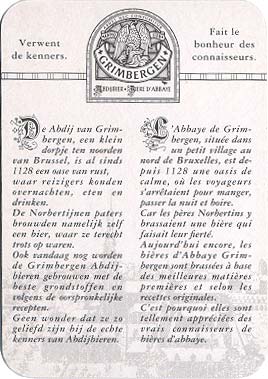 Verwent
de kenners.
Fait le
bonheur des
connaisseurs.
GRIMBERGEN
ABDIJBIER · BIÈRE D'ABBAYE
De Abdij van Grim-
bergen, een klein
dorpje ten noorden
van Brussel, is al sinds
1128 een oase van rust,
waar reizigers konden
overnachten, eten en
drinken.
De Norbertijnen paters
brouwden namelijk zelf
een bier, waar ze terecht
trots op waren.
Ook vandaag nog worden
de Grimbergen Abdij-
bieren gebrouwen met de
beste grondstoffen en
volgens de oorspronkelijke
recepten.
Geen wonder dat ze zo
geliefd zijn bij de echte
kenners van Abdijbieren.
L'Abbaye de Grim-
bergen, située dans
un petit village au
nord de Bruxelles, est de-
puis 1128 une oasis de
calme, où les voyageurs
s'arrêtaient pour manger,
passer la nuit et boire.
Car les pères Norbertins y
brassaient une bière qui
faisait leur fierté.
Aujourd'hui encore, les
bières d'Abbaye Grim-
bergen sont brassées à base
des meilleures matières
premières et selon les
recettes originales.
C'est pourquoi elles sont
tellement appréciées des
vrais connaisseurs de
bières d'abbaye.